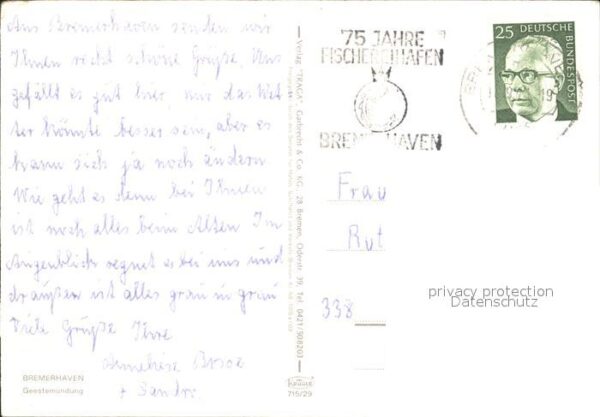 Aus Bremerhaven senden wir
Ihnen recht schöne Grüße. Uns
gefällt es gut hier, nur das Wet
ter könnte besser sein, aber es
kann sich ja noch ändern
Wie geht es denn bei Ihnen
ist noch alles beim Alten Im
Augenblick regnet es bei uns und
draußen ist alles grau in grau
Viele Grüße Ihre
Anneliese
+ Sandra
BREMERHAVEN
Geestemündung
Verlag "FRAGA", Garbrecht & Co. KG., 28 Bremen, Oderstr. 39, Tel. 0421/508203
KRÜGER
715/29
75 JAHRE
FISCHEREIHAFEN
BREMERHAVEN
25 DEUTSCHE
BUNDESPOST
Frau
Rut
338
privacy protection
Datenschutz